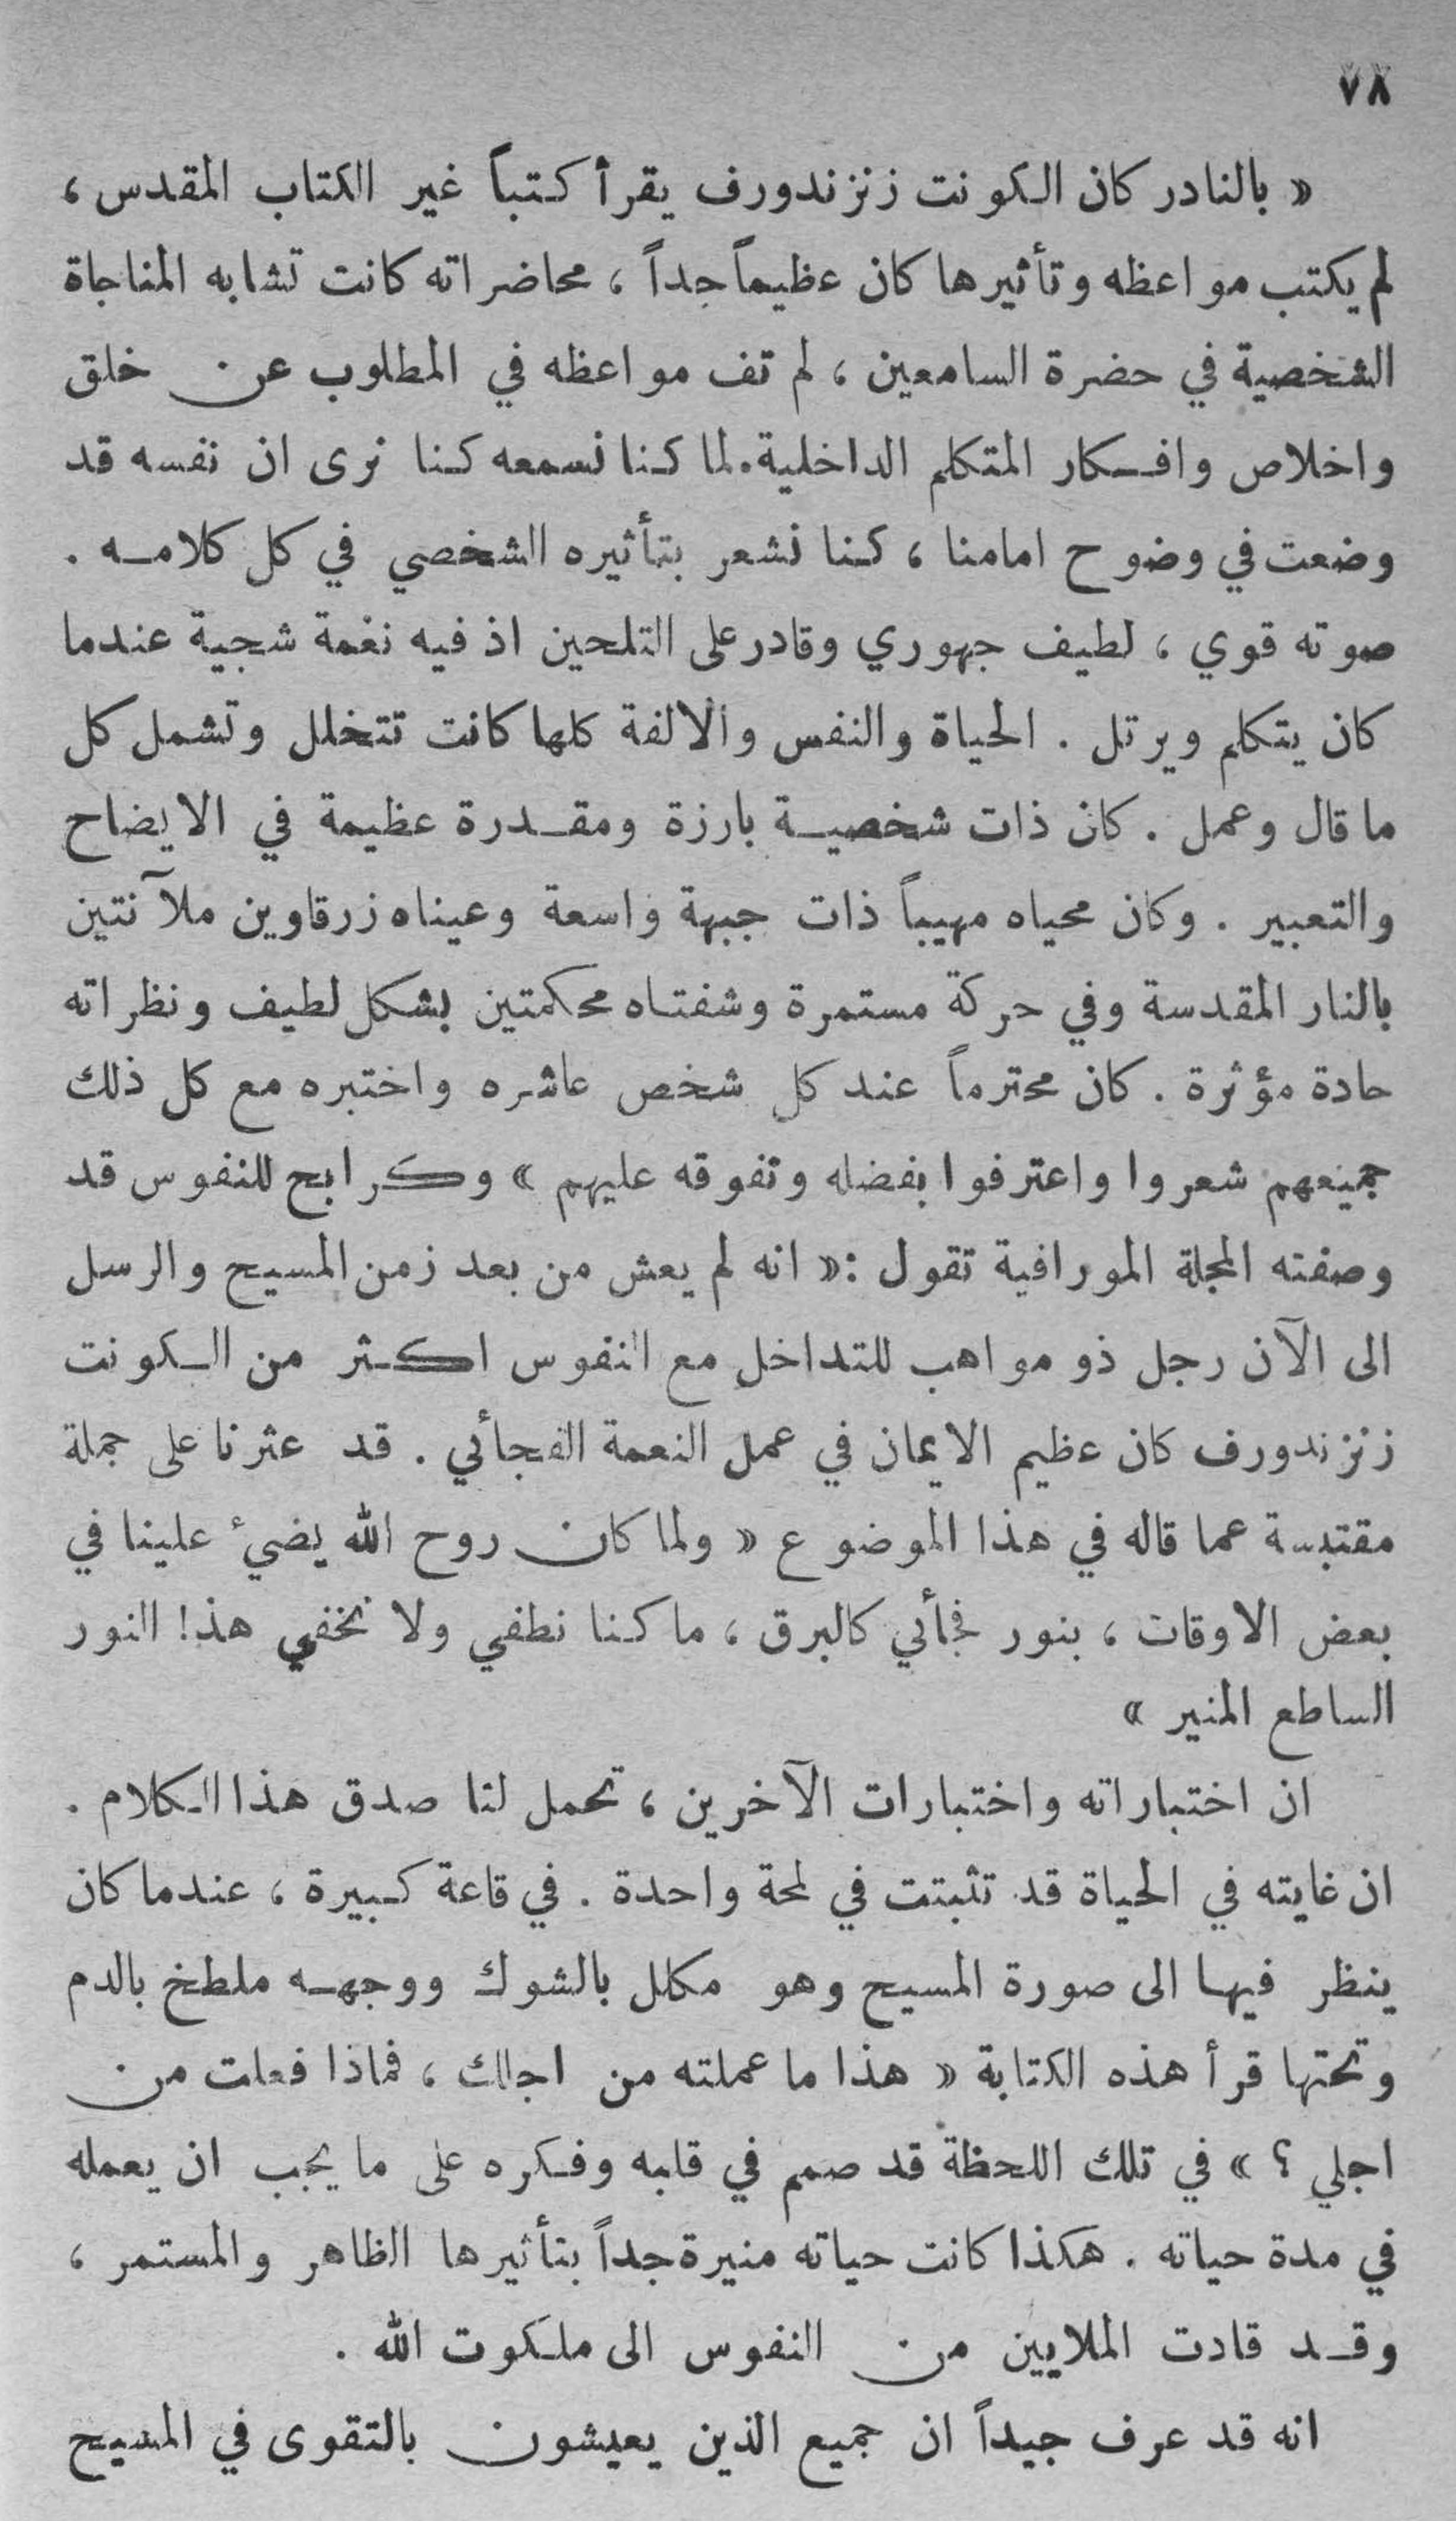 ٧٨
« بالنادر كان الكونت زنزندورف يقرأ كتباً غير الكتاب المقدس ،
لم يكتب مواعظه وتأثيرها كان عظيماً جداً ، محاضراته كانت تشابه المناجاة
الشخصية في حضرة السامعين ، لم تف مواعظه في المطلوب عن خلق
واخلاص وافكار المتكلم الداخلية. لما كنا نسمعه كنا نرى ان نفسه قد
وضعت في وضوح امامنا ، كنا نشعر بتأثيره الشخصي في كل كلامه .
صوته قوي ، لطيف جهوري وقادر على التلحين اذ فيه نغمة شجية عندما
كان يتكلم ويرتل . الحياة والنفس والالفة كلها كانت تتخلل وتشمل كل
ما قال وعمل . كان ذات شخصية بارزة ومقدرة عظيمة في الايضاح
والتعبير . وكان محياه مهيباً ذات جبهة واسعة وعيناه زرقاوين ملآنتين
بالنار المقدسة وفي حركة مستمرة وشفتاه محكمتين بشكل لطيف ونظراته
حادة مؤثرة . كان محترماً عند كل شخص عاشره واختبره مع كل ذلك
جميعهم شعروا واعترفوا بفضله وتفوقه عليهم » وكرابح للنفوس قد
وصفته المجلة المورافية تقول :« انه لم يعش من بعد زمن المسيح والرسل
الى الآن رجل ذو مواهب للتداخل مع النفوس اكثر من الكونت
زنزندورف كان عظيم الايمان في عمل النعمة الفجأئي . قد عثرنا على جملة
مقتبسة عما قاله في هذا الموضوع « ولما كان روح الله يضيء علينا في
بعض الاوقات ، بنور فجأئي كالبرق ، ما كنا نطفي ولا نخفي هذا النور
الساطع المنير »
ان اختباراته واختبارات الآخرين ، تحمل لنا صدق هذا الكلام .
ان غايته في الحياة قد تثبتت في لمحة واحدة . في قاعة كبيرة ، عندما كان
ينظر فيها الى صورة المسيح وهو مكلل بالشوك ووجهه ملطخ بالدم
وتحتها قرأ هذه الكتابة « هذا ما عملته من اجلك ، فماذا فعلت من
اجلي ؟ » في تلك اللحظة قد صمم في قلبه وفكره على ما يجب ان يعمله
في مدة حياته . هكذا كانت حياته منيرة جداً بتأثيرها الظاهر والمستمر ،
وقد قادت الملايين من النفوس الى ملكوت الله .
انه قد عرف جيداً ان جميع الذين يعيشون بالتقوى في المسيح